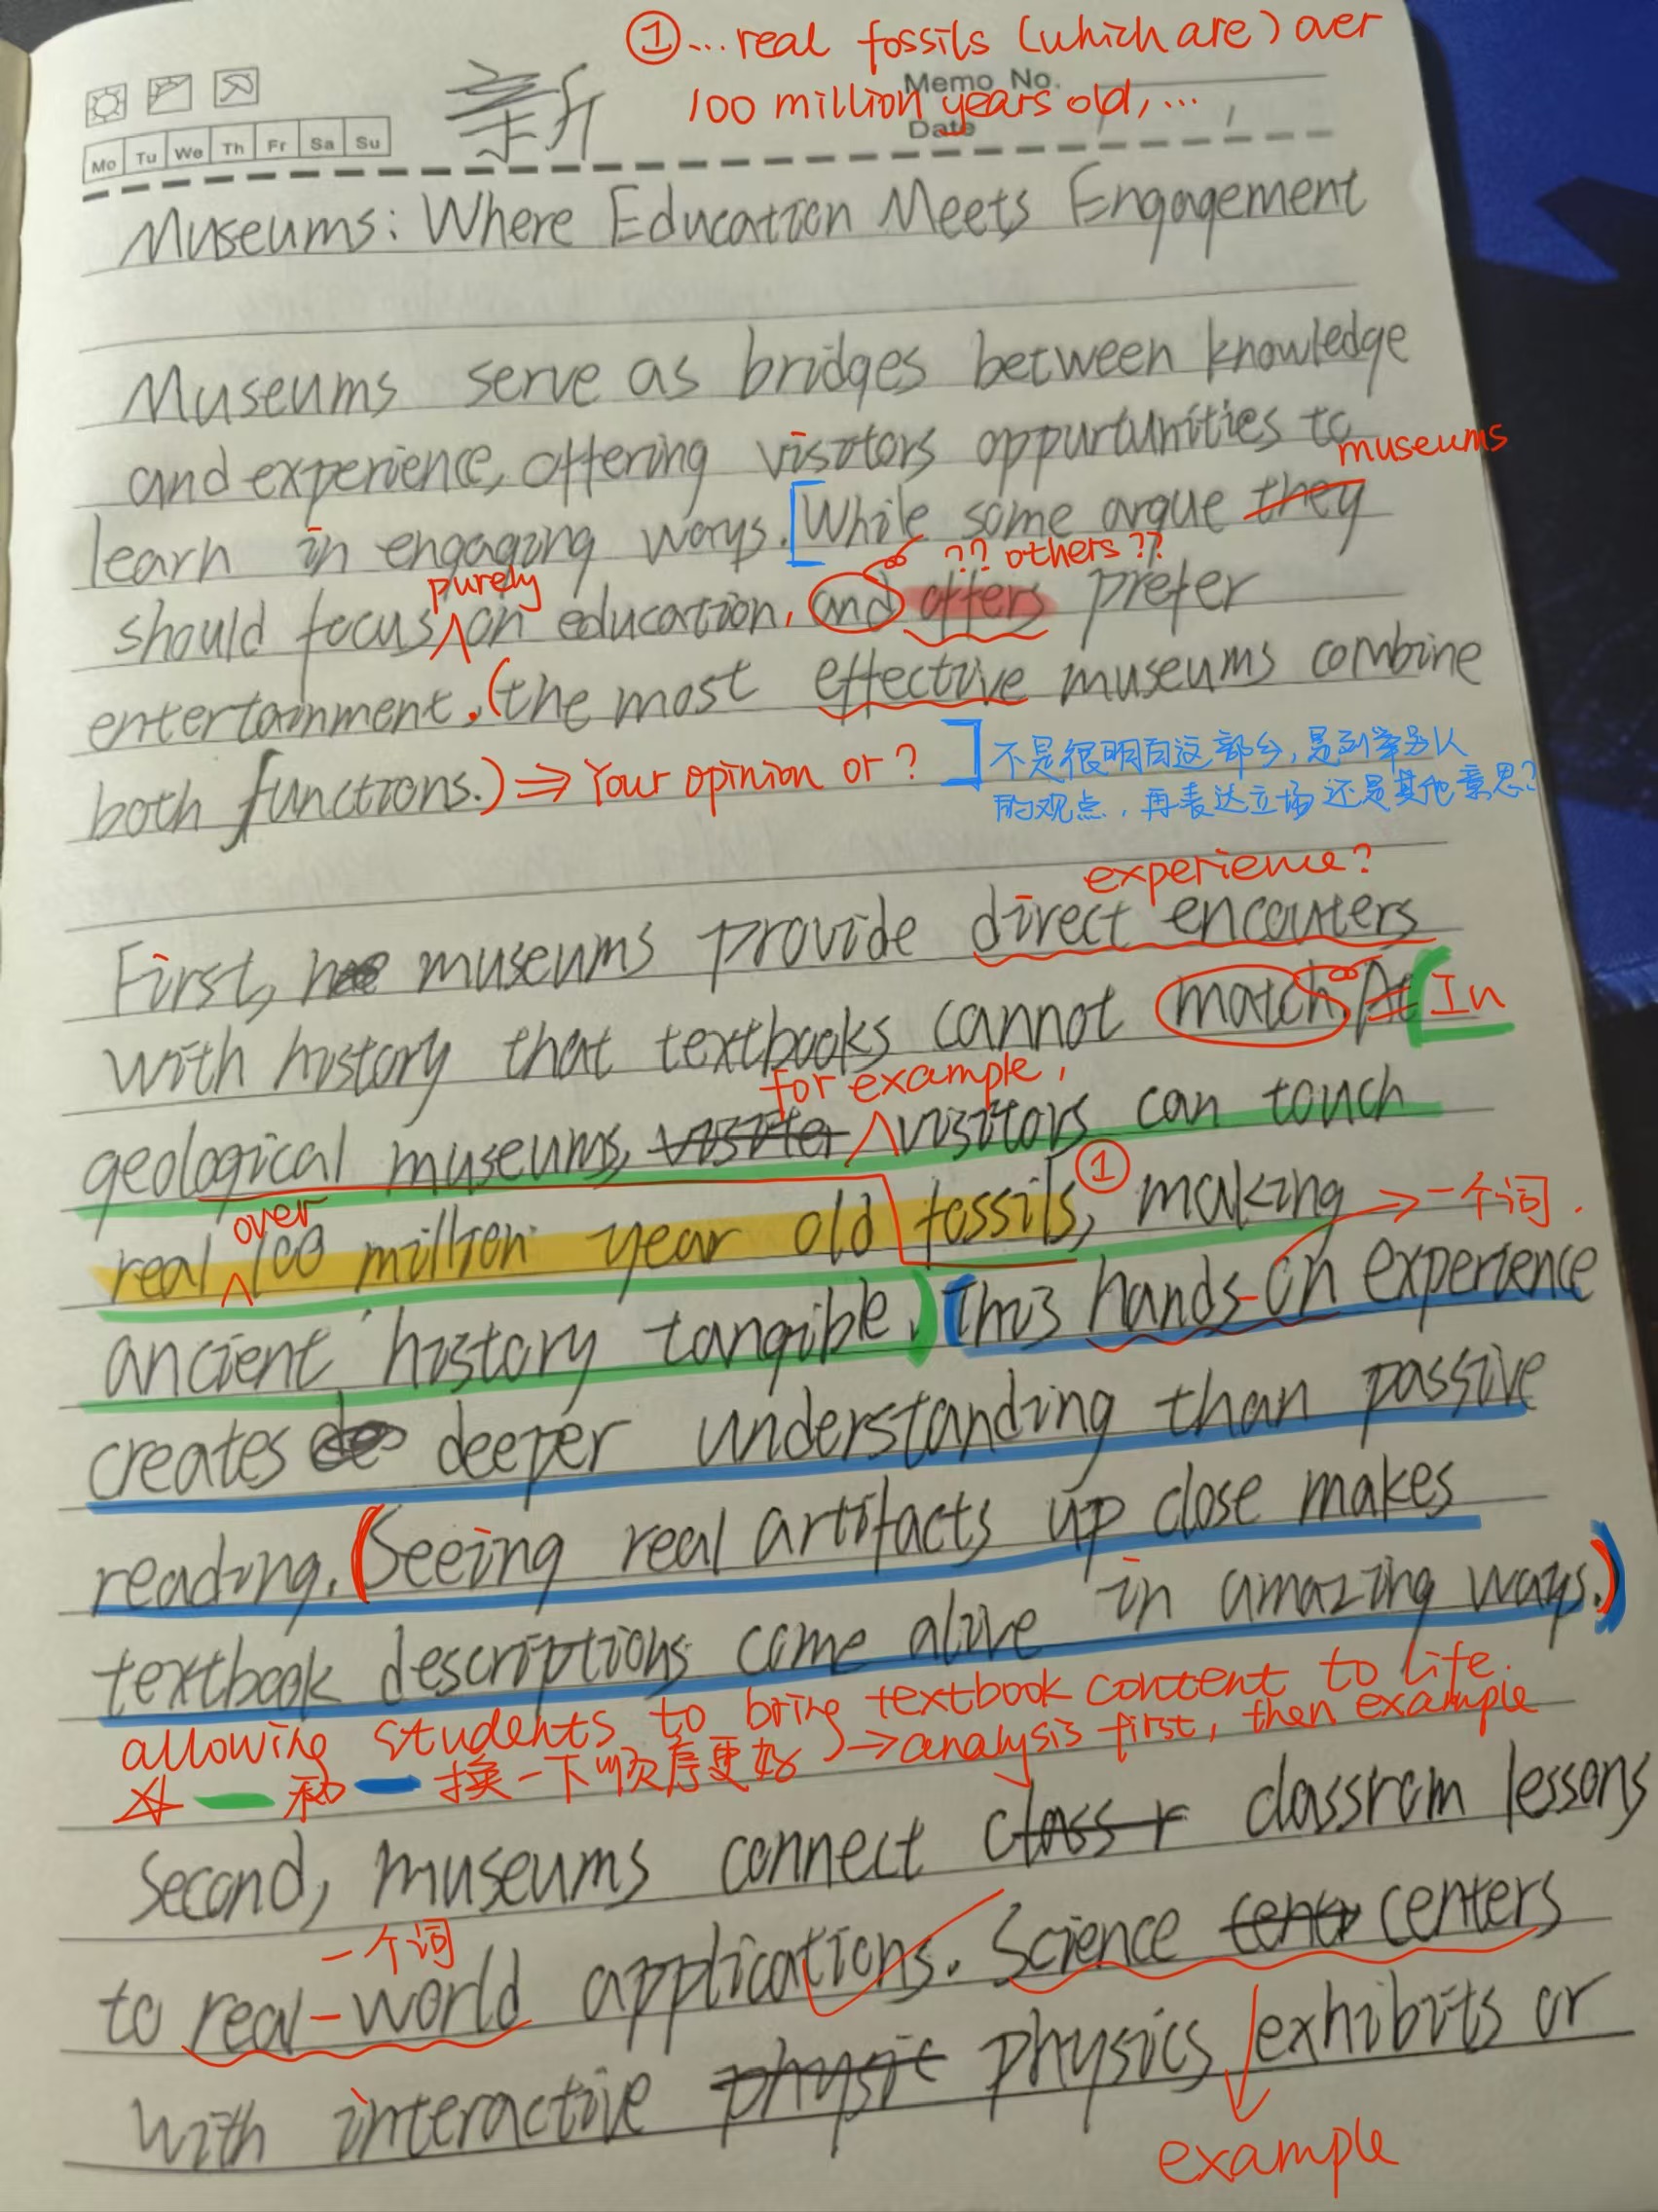 ① ... real fossils (which are) over
100 million years old, ...
新
Memo No.
Date / /
Mo Tu We Th Fr Sa Su
Museums: Where Education Meets Engagement
Museums serve as bridges between knowledge
and experience, offering visitors oppurtunities to
museums
learn in engaging ways. [While some argue they
purely
?? others??
should focus on education, and offers prefer
entertainment. (the most effective museums combine
both functions.) ⇒ Your opinion or? ]
不是很明白这部分,是列举别人
的观点,再表达立场还是其他意思?
experience?
First, museums provide direct encouters
with history that textbooks cannot match. At In
for example,
geological museums, visiter visitors can touch
over
real 100 million year old fossils, ① making → 一个词.
ancient history tangible. This hands-on experience
creates de deeper understanding than passive
reading. (Seeing real artifacts up close makes
textbook descriptions come alive in amazing ways.)
allowing students to bring textbook content to life.
☆ — 和 — 换一下顺序更好 → analysis first, then example
Second, museums connect class r classrom lessons
一个词
to real-world applications. Science cente centers
with interactive physic physics exhibits or
example